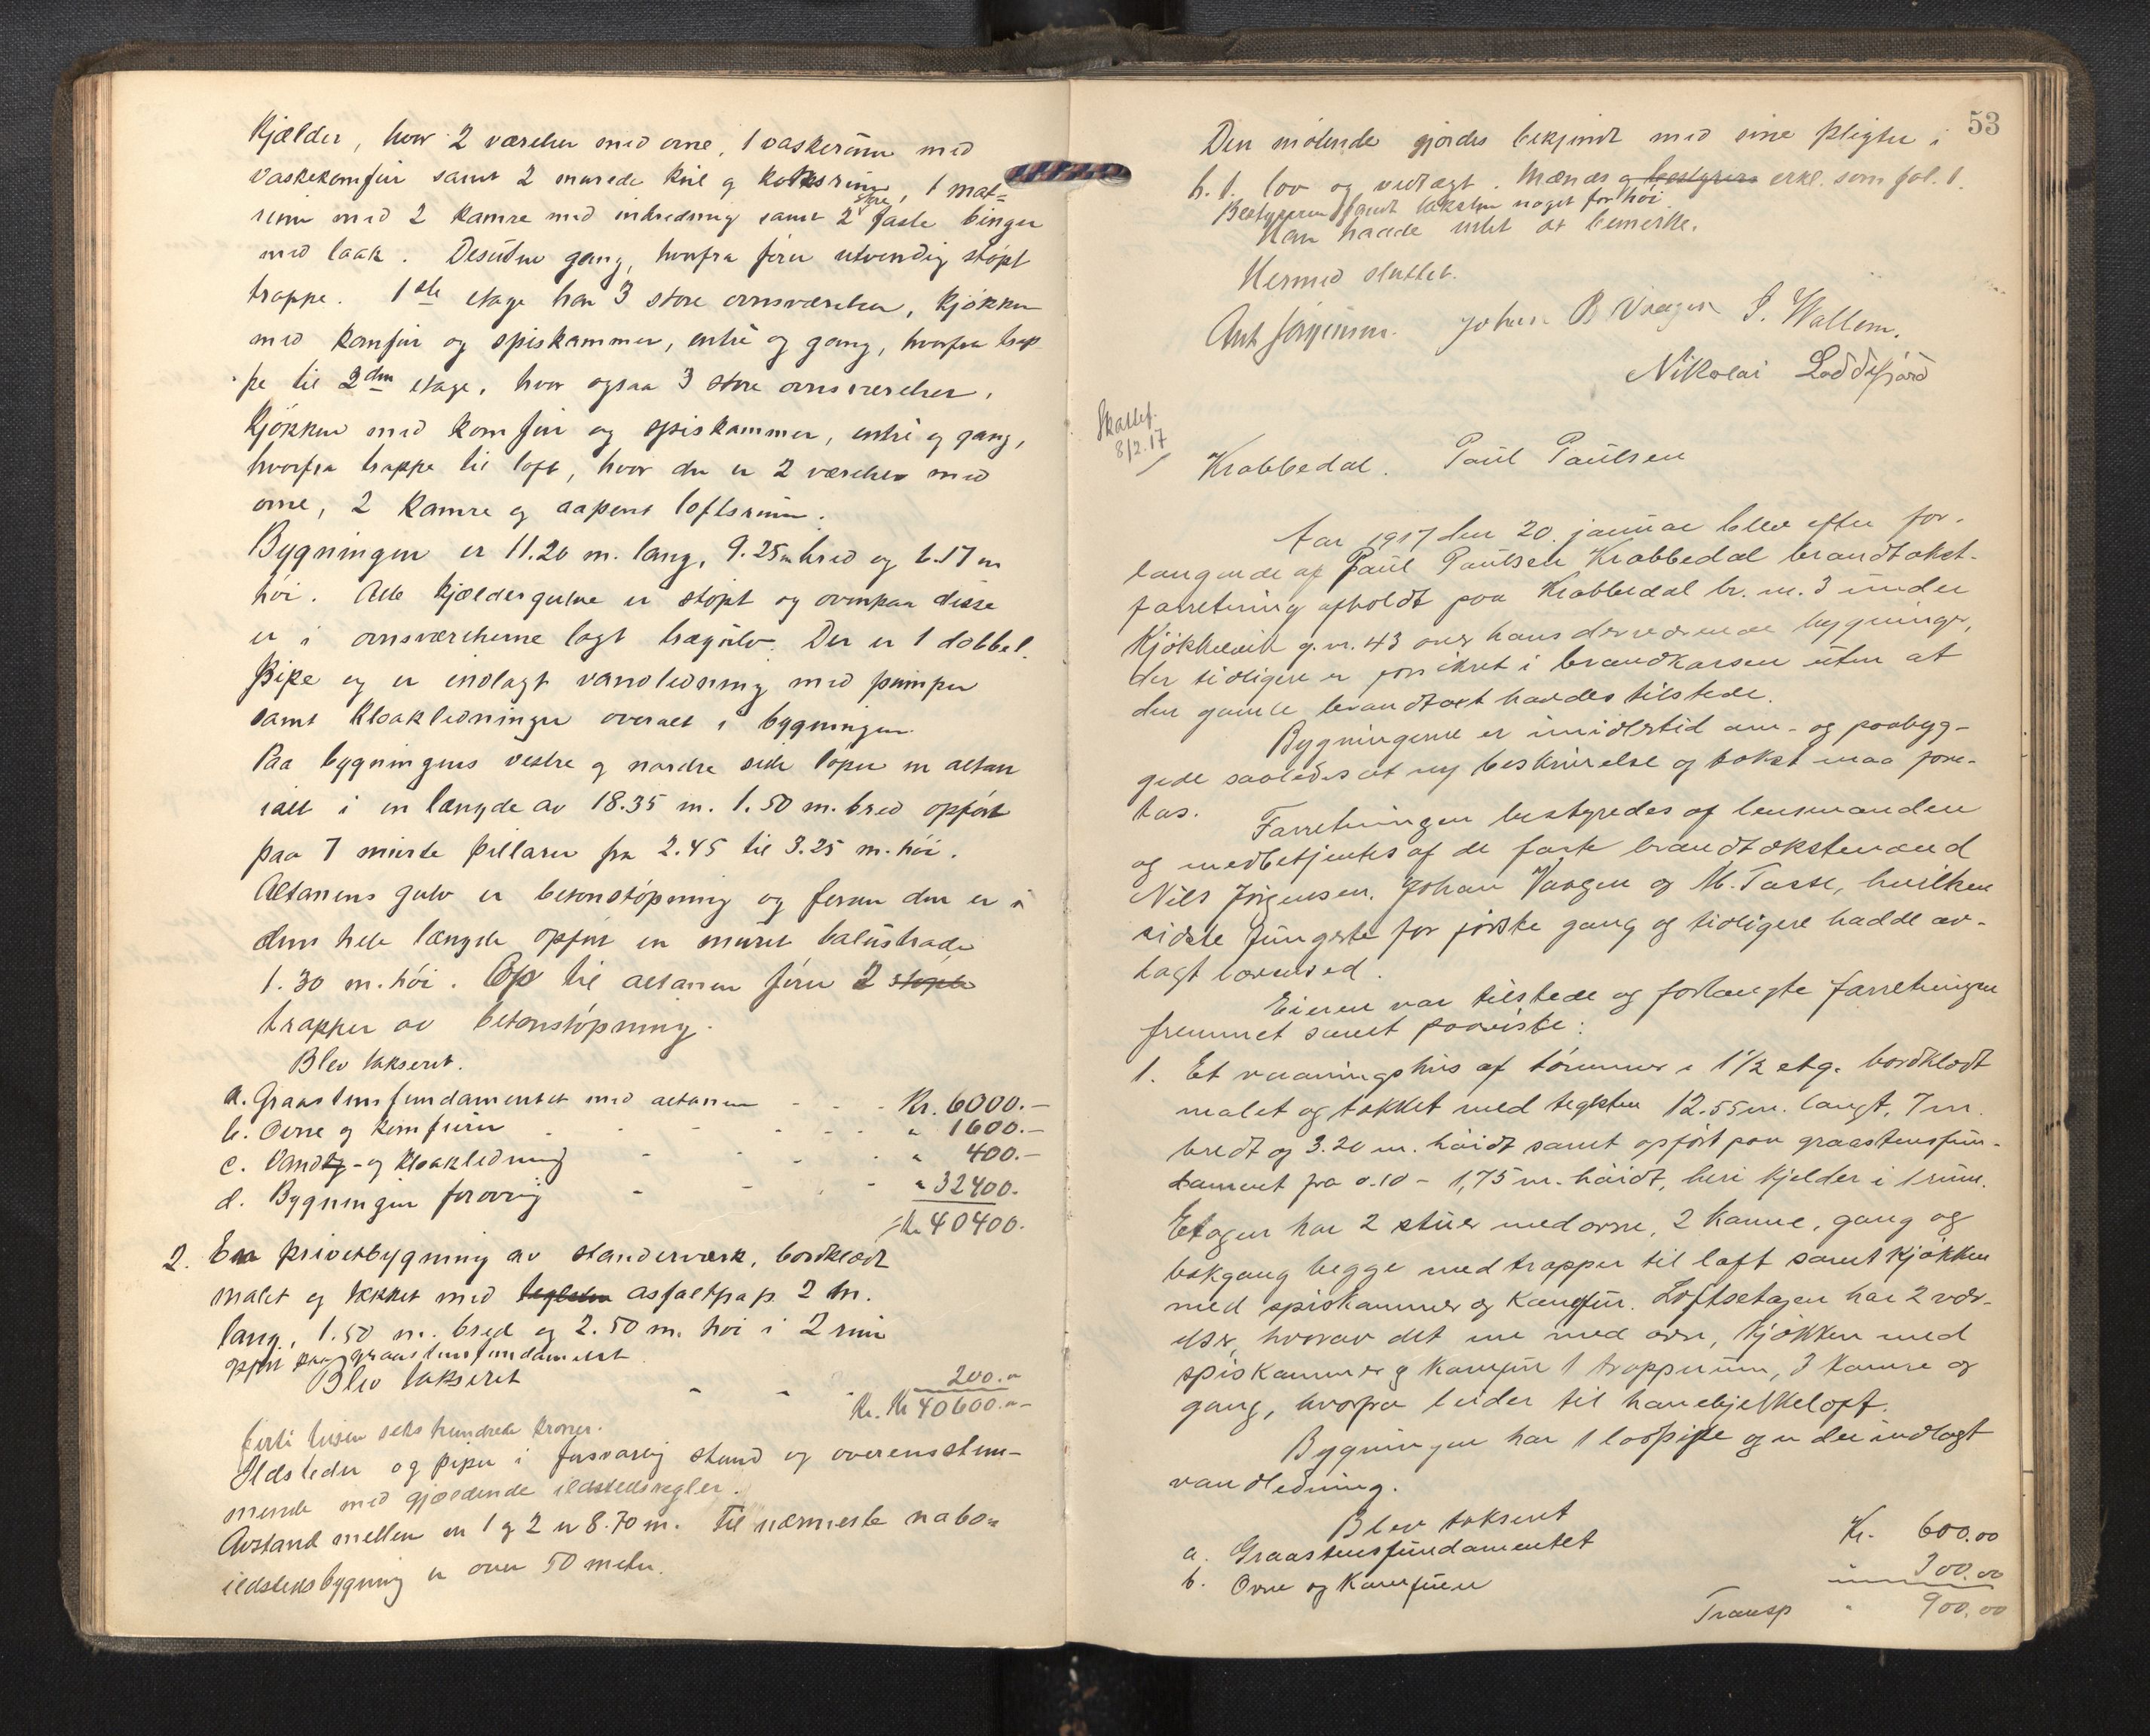 Kjælder, hvor 2 værelser med ovne, 1 vaskerum med
vaskekomfur samt 2 murede kul og koksrum, 1 mat-
rum med 2 kamre med inkredning samt 2 store faste binger
med laak. Desuten gang, hvorfra fører utvendig støpt
trappe. 1ste etage har 3 store ovnsværelser, kjøkken
med komfur og spiskammer, entré og gang, hvorfra trap-
pe til 2den etage, hvor ogsaa 3 store ovnsværelser,
kjøkken med komfur og spiskammer, entré og gang,
hvorfra trappe til loft, hvor der er 2 værelser med
ovne, 2 kamre og aapent loftsrum.
Bygningen er 11.20 m. lang, 9.25 m bred og 6.17 m
høi. Alle kjældergulve er støpt og ovenpaa disse
er i ovnsværelserne lagt trægulv. Der er 1 dobbel
pipe og er indlagt vandledning med pumper
samt kloakledninger overalt i bygningen.
Paa bygningens vestre og nordre side løper en altan
ialt i en længde av 18.35 m. 1.50 m. bred opført
paa 7 murte pillarer fra 2.45 til 3.25 m. høi.
Altanens gulv er betonstøpning og foran den er i
dens hele længde opført en muret balustrade
1.30 m. høi. Op til altanen fører 2 støpte
trapper av betonstøpning.
Blev takseret.
a. Graastensfundamentet med altanen - - - Kr. 6000.-
b. Ovne og komfurer - - - " 1600.-
c. Vand- og kloakledning - - - " 400.-
d. Bygningen forøvrig - - - " 32400.
Kr. 40400.
2. En privetbygning av standerværk, bordklædt
malet og tækket med teglsten asfaltpap 2 m.
lang, 1.50 m. bred og 2.50 m. høi i 2 rum
opført paa graastensfundament.
Blev takseret - - - 200.-
Kr. Kr 40600.-
firti tusen seks hundrede kroner.
Ildsteder og piper i forsvarlig stand og overensstem-
mende med gjældende ildstedsregler.
Avstand mellem nr 1 og 2 er 8.70 m. Til nærmeste nabo-
ildstedsbygning er over 50 meter.
53
Den møtende gjordes bekjendt med sine pligter i
h. t. lov og vedtægt. Mænds og bestyrers erkl. som fol. 1.
Bestyreren fandt taksten noget for høi
Han hadde intet at bemerke.
Hermed sluttet.
Ant Jørgensen. Johan B Vaagen J. Wallem.
Nikolai Loddefjord
Skattef.
8/2.17
Krabbedal. Paul Paulsen
Aar 1917 den 20. januar blev efter for-
langende af Paul Paulsen Krabbedal brandtakst-
forretning afholdt paa Krabbedal br. nr. 3 under
Kjøkkelvik g. nr. 43 over hans derværende bygninger,
der tidligere er forsikret i brandkassen uten at
den gamle brandtakst havdes tilstede.
Bygningerne er imidlertid om- og paabyg-
gede saaledes at ny beskrivelse og takst maa fore-
tas.
Forretningen bestyredes af lensmanden
og medbetjentes af de faste brandtakstmænd
Nils Jørgensen, Johan Vaagen og M. Tasse, hvilken
sidste fungerte for første gang og tidligere hadde av-
lagt laevsed.
Eieren var tilstede og forlangte forretningen
fremmet samt paaviste:
1. Et vaaningshus af tømmer i 1 1/2 etg. bordklædt
malet og tækket med teglsten 12.55 m. langt, 7 m.
bredt og 3.20 m. høidt samt opført paa graastensfun-
dament fra 0.10 - 1,75 m. høidt, heri kjelder i 1 rum.
Etagen har 2 stuer med ovne, 2 kamre, gang og
bakgang begge med trapper til loft samt kjøkken
med spiskammer og Komfur. Loftsetagen har 2 vær-
elser, hvorav det ene med ovn, kjøkken med
spiskammer og komfur 1 trapperum, 3 kamre og
gang, hvorfra leider til hanebjelkeloft.
Bygningen har 1 løspipe og er der indlagt
vandledning.
Blev takseret
a. Graastensfundamentet Kr. 600.00
b. Ovne og Komfurer " 300.00
Transp " 900.00